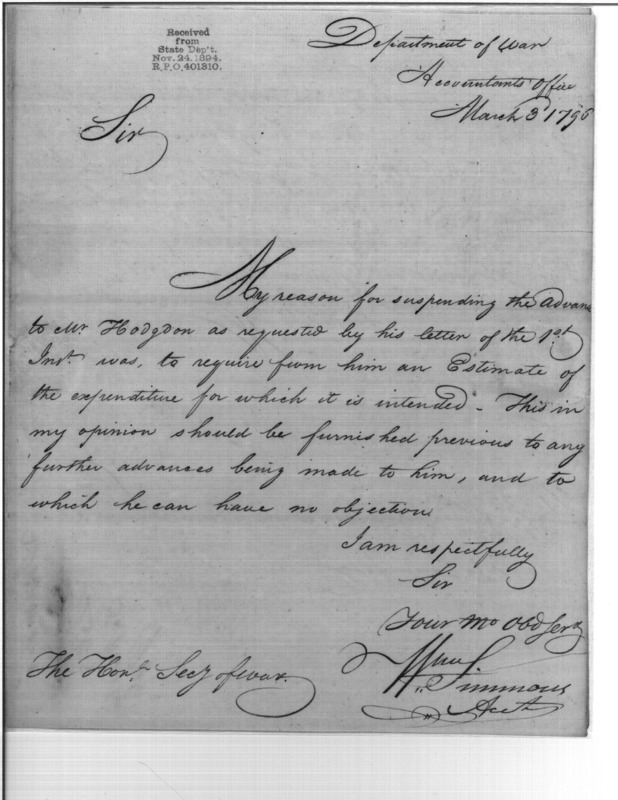 Received
from
State Dep't.
Nov. 24. 1894.
R.P.O. 401310.
Department of War
Accountants Office
March 3d 1796
Sir
My reason for suspending the advance
to Mr Hodgdon as requested by his letter of the 1st
Inst. was, to require from him an Estimate of
the expenditure for which it is intended - This in
my opinion should be furnished previous to any
further advances being made to him, and to
which he can have no objection
I am respectfully
Sir
Your Mo Obd Servt
Wm Simmons
Acctt
The Honl. Secy of war.